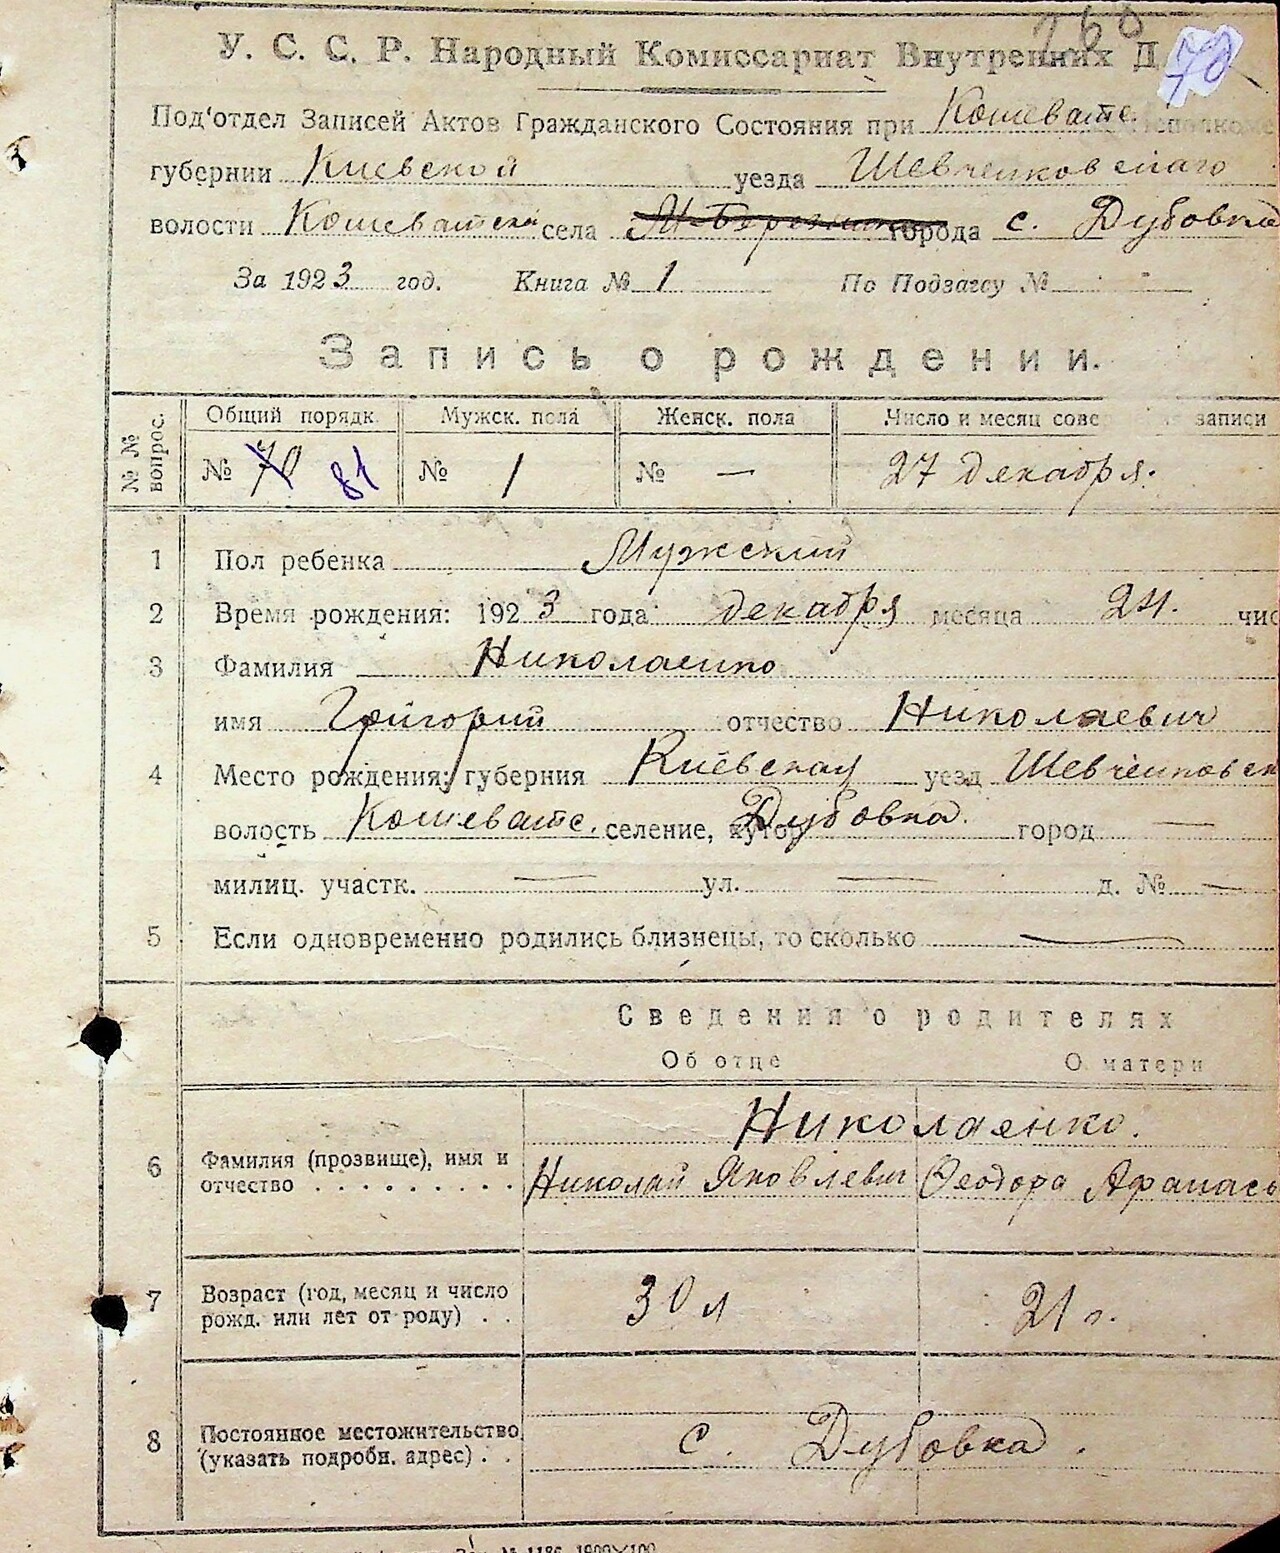 260
У. С. С. Р. Народный Комиссариат Внутренних Д
70
Под'отдел Записей Актов Гражданского Состояния при Кошеватс.
губернии Киевской уезда Шевченковскаго
волости Кошеватской села города с. Дубовка
За 1923 год. Книга № 1 По Подзагсу № -
Запись о рождении.
№ № вопрос. Общий порядк. Мужск. пола Женск. пола Число и месяц сове записи
№ 70 81 № 1 № — 27 декабря.
1 Пол ребенка Мужский
2 Время рождения: 1923 года декабря месяца 24. чис
3 Фамилия Николаенко
имя Григорий отчество Николаевич
4 Место рождения: губерния Киевская уезд Шевченковск
волость Кошеватс. селение, хутор Дубовка. город —
милиц. участк. — ул. — д. № —
5 Если одновременно родились близнецы, то сколько —
Сведения о родителях
Об отце О матери
Николаенко.
6 Фамилия (прозвище), имя и отчество Николай Яковлевич Феодора Афанась
7 Возраст (год, месяц и число рожд. или лет от роду) . . 30 л 21 г.
8 Постоянное местожительство (указать подробн. адрес) . . с. Дубовка.
№ 1186 1909×100